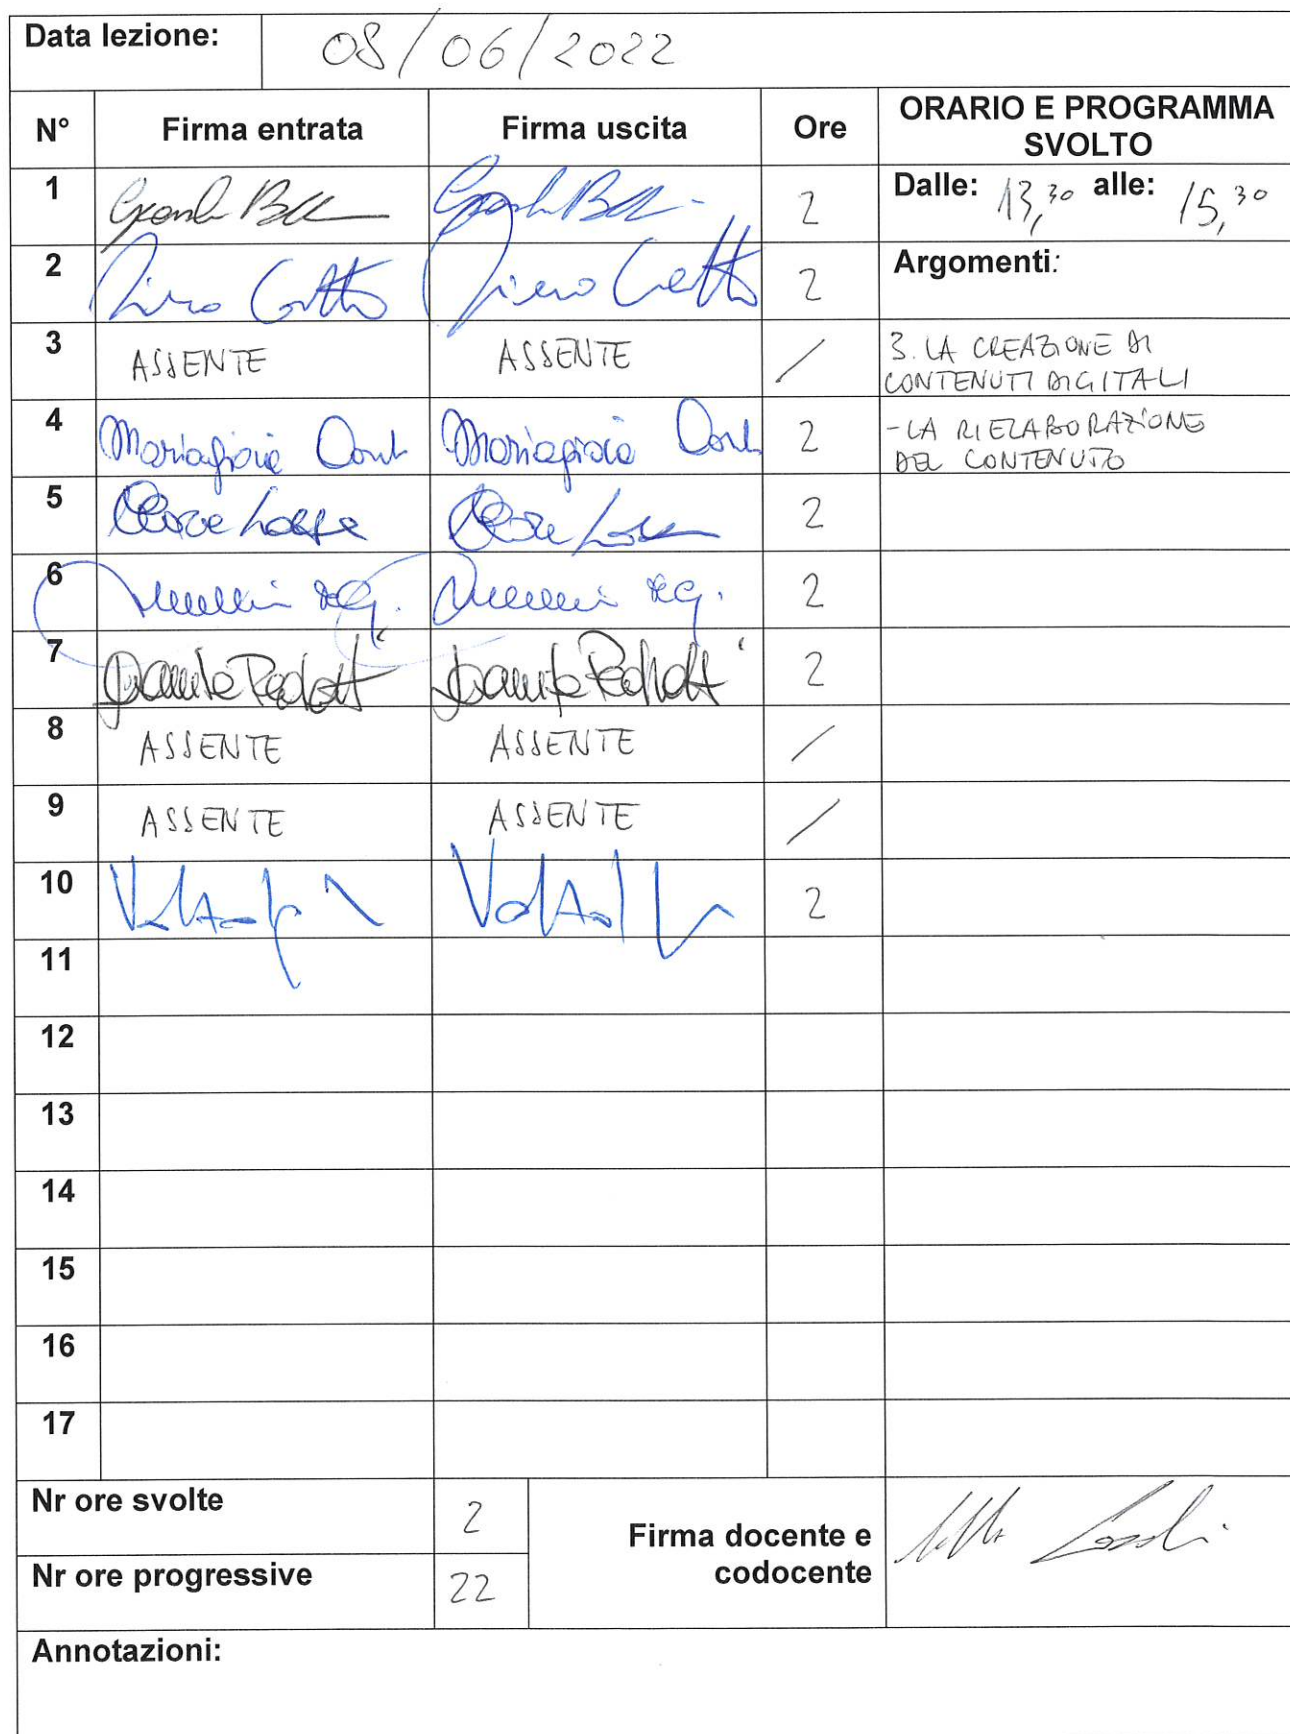 Data lezione: 08/06/2022
N° Firma entrata Firma uscita Ore ORARIO E PROGRAMMA
SVOLTO
1 2 Dalle: 13,30 alle: 15,30
2 Piero 2 Argomenti:
3 ASSENTE ASSENTE / 3. LA CREAZIONE DI
CONTENUTI DIGITALI
4 Mariagioia Mariagioia 2 - LA RIELABORAZIONE
DEL CONTENUTO
5 2
6 2
7 2
8 ASSENTE ASSENTE /
9 ASSENTE ASSENTE /
10 2
11
12
13
14
15
16
17
Nr ore svolte 2 Firma docente e
codocente
Nr ore progressive 22
Annotazioni: